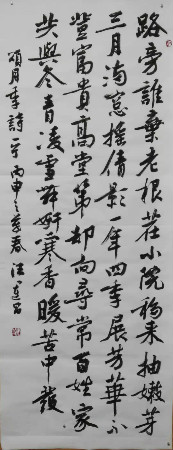 路旁誰棄老根茬小院移来抽嫩芽
三月满窓搖倩影一年四季展芳華不
登富貴高堂第却向尋常百姓家
共與冬青凌雪舞奸寒香暖苦中護
頌月季詩一首丙申之暮春汪